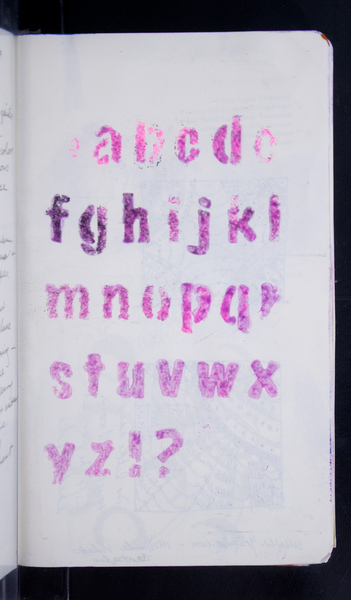 abcde
fghijkl
mnopqr
stuvwx
yz!?